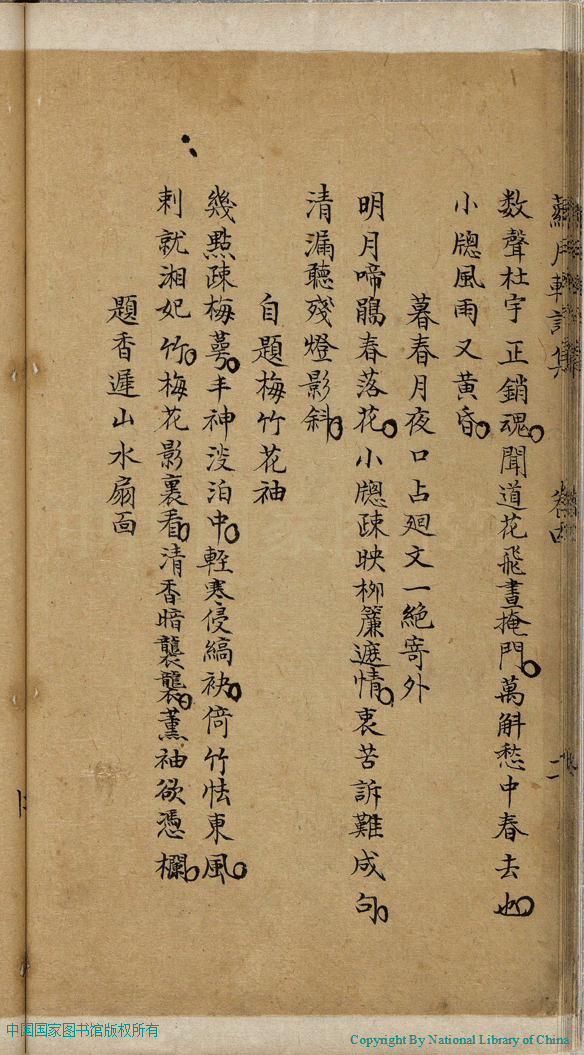 数聲杜宇正銷魂聞道花飛晝掩門萬斛愁中春去也
小牕風雨又黃昏
暮春月夜口占廻文一絶寄外
明月啼鵑春落花小牕疎映柳簾遮情衷苦訴難成句
清漏聽殘燈影斜
自題梅竹花袖
幾點疎梅萼丰神淡泊中輕寒侵縞袂倚竹怯東風
刺就湘妃竹梅花影裏看清香暗襲襲薰袖欲憑欄
題香遲山水扇面
中国国家图书馆版权所有
Copyright By National Library of China